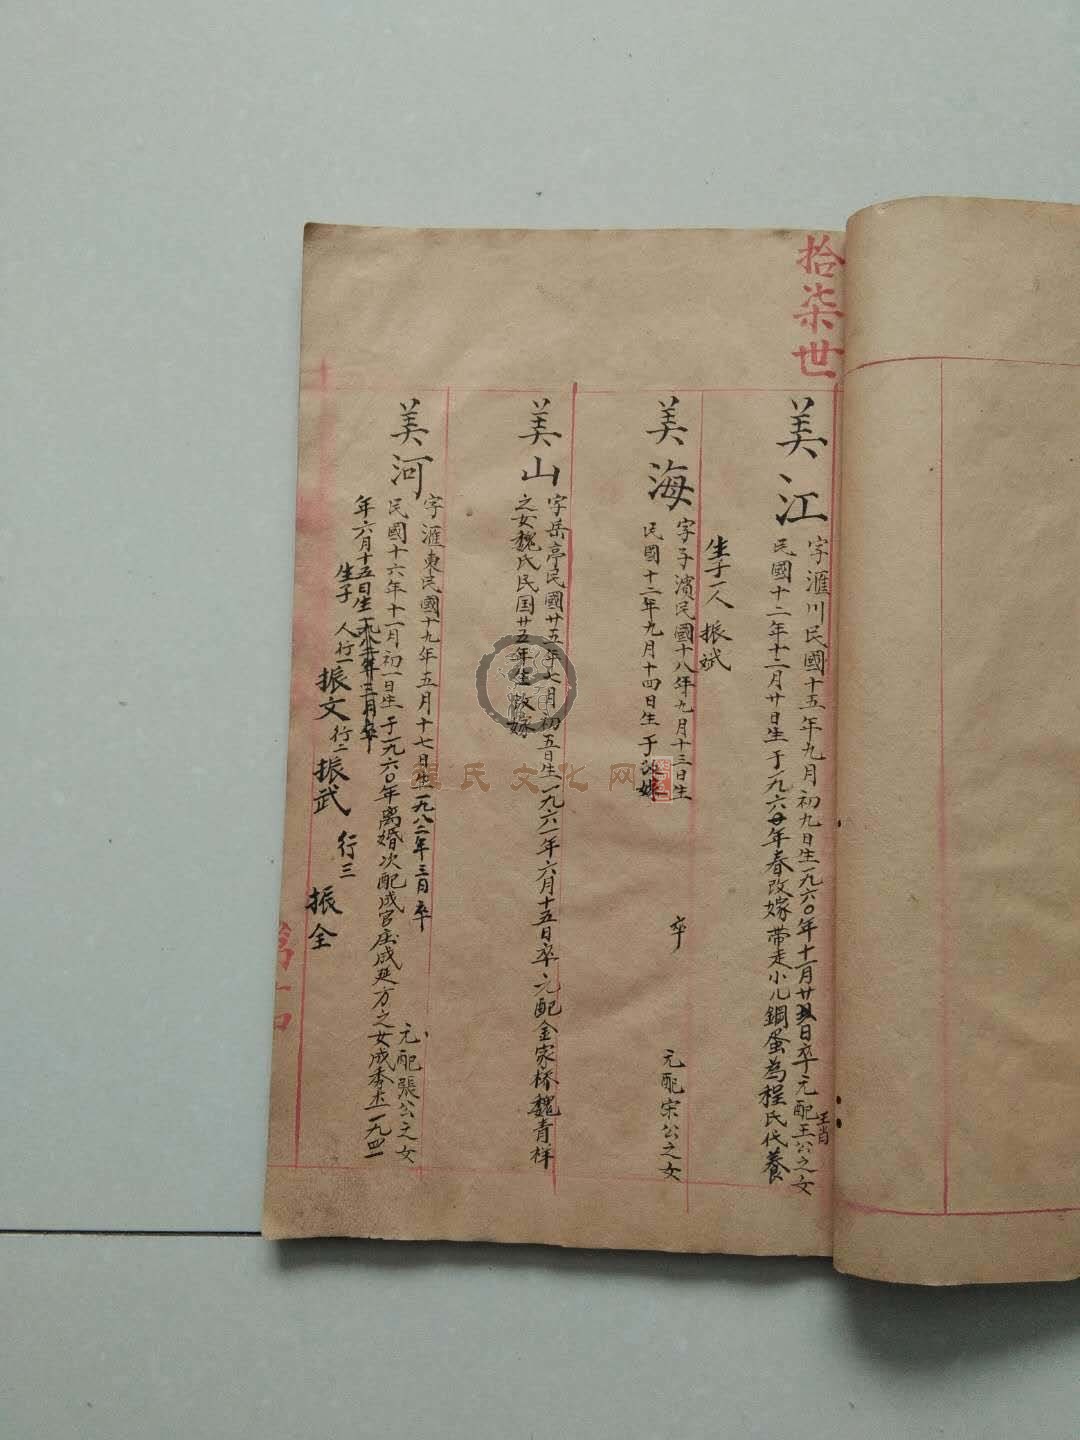 拾柒世
美江
字滙川民國十五年九月初九日生一九六〇年十一月廿五日卒元配王公之女
王肖
民國十二年十二月廿日生于一九六〇年春改嫁带走小儿鋼蛋為程氏代養
生子一人 振斌
美海
字子濱民國十八年九月十三日生 卒 元配宋公之女
民國十二年九月十四日生于 改嫁
美山
字岳亭民國廿五年七月初五日生一九六一年六月十五日卒元配金家桥魏青祥
之女魏氏民国廿五年生改嫁
美河
字滙東民國十九年五月十七日生一九八二年三月卒 元配張公之女
民國十六年十一月初一日生于一九六〇年离婚次配成官庄成延方之女成秀 一九四一
年六月十五日生一九八 年三月卒
生子 人行一 振文 行二 振武 行三 振全
程氏文化网